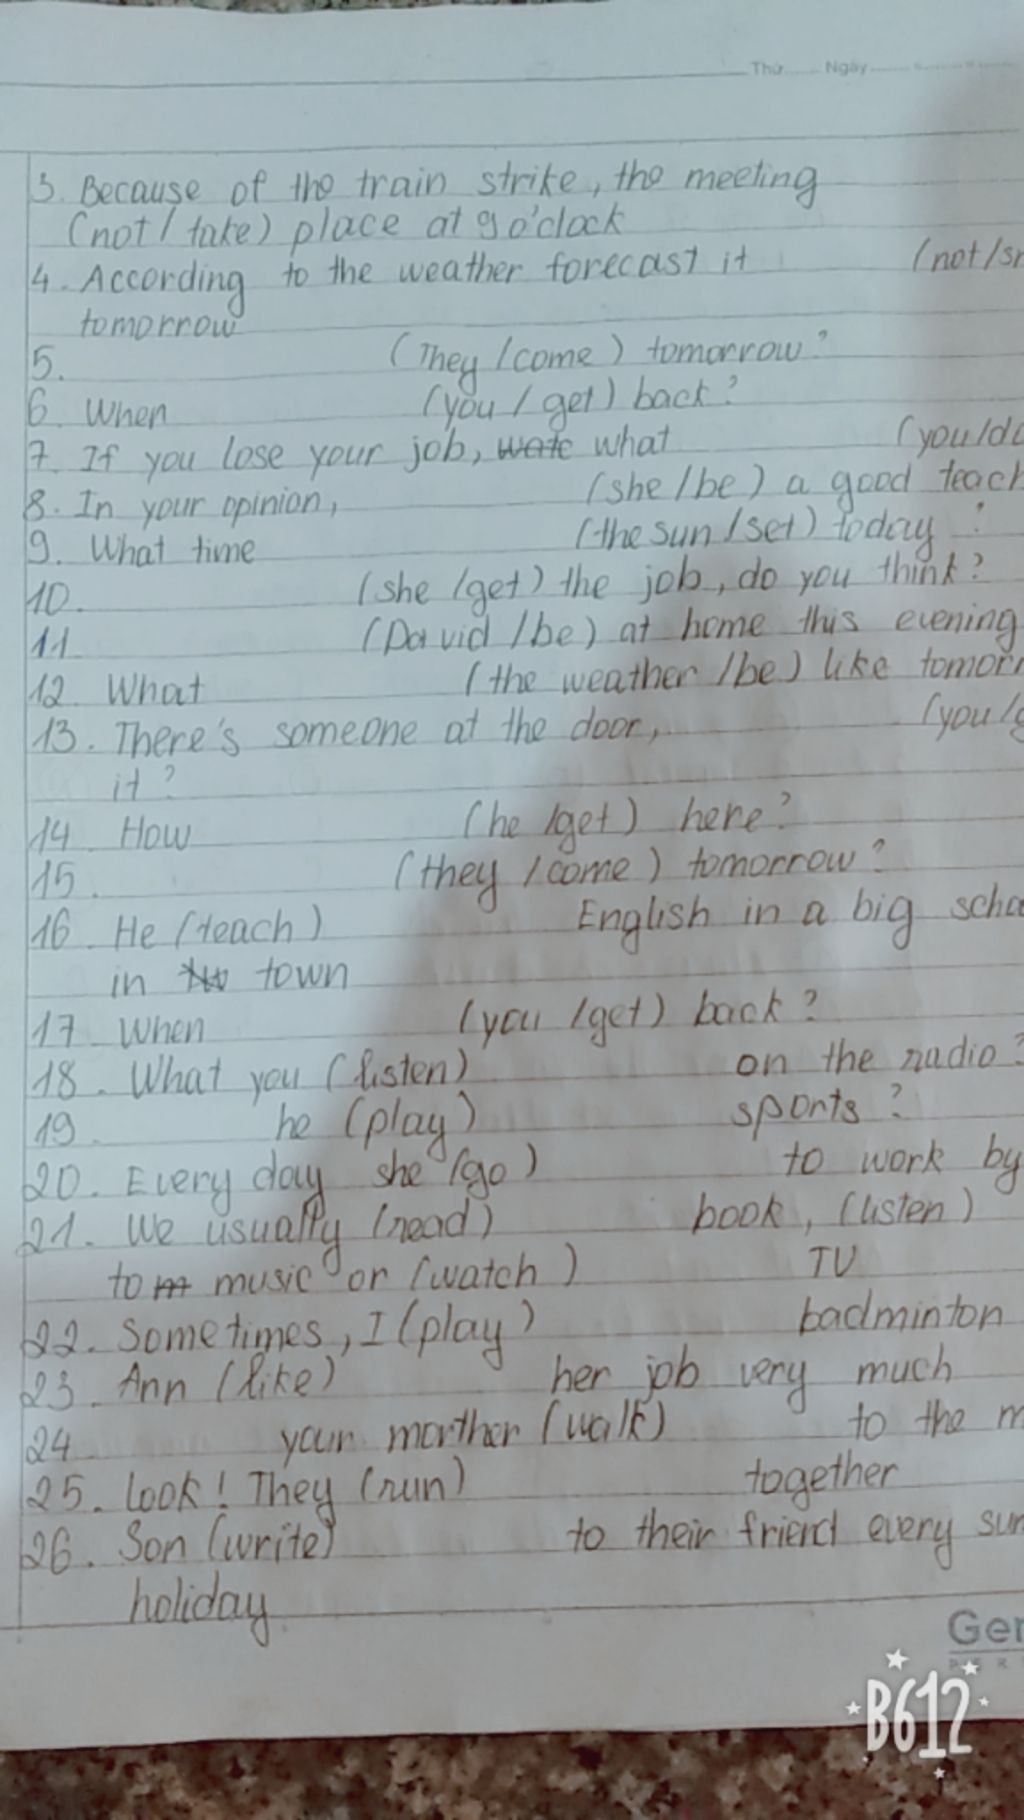 Thứ...... Ngày
3. Because of the train strike, the meeting
(not / take) place at 9 o'clock
4. According to the weather forecast it (not/sn
tomorrow
5. (They /come) tomorrow?
6. When (you / get) back?
7. If you lose your job, what (you/do
8. In your opinion, (she /be) a good teach
9. What time (the sun /set) today ?
10. (she /get) the job, do you think?
11 (David /be) at home this evening
12. What (the weather /be) like tomorr
13. There's someone at the door, (you/g
it ?
14. How (he /get) here?
15. (they / come) tomorrow?
16. He (teach) English in a big scho
in town
17. When (you /get) back ?
18. What you (listen) on the radio?
19. he (play) sports ?
20. Every day she (go) to work by
21. We usually (read) book, (listen)
to music or (watch) TV
22. Sometimes, I (play) badminton
23. Ann (like) her job very much
24 your morther (walk) to the m
25. look! They (run) together
26. Son (write) to their friend every sum
holiday
Ger
B612